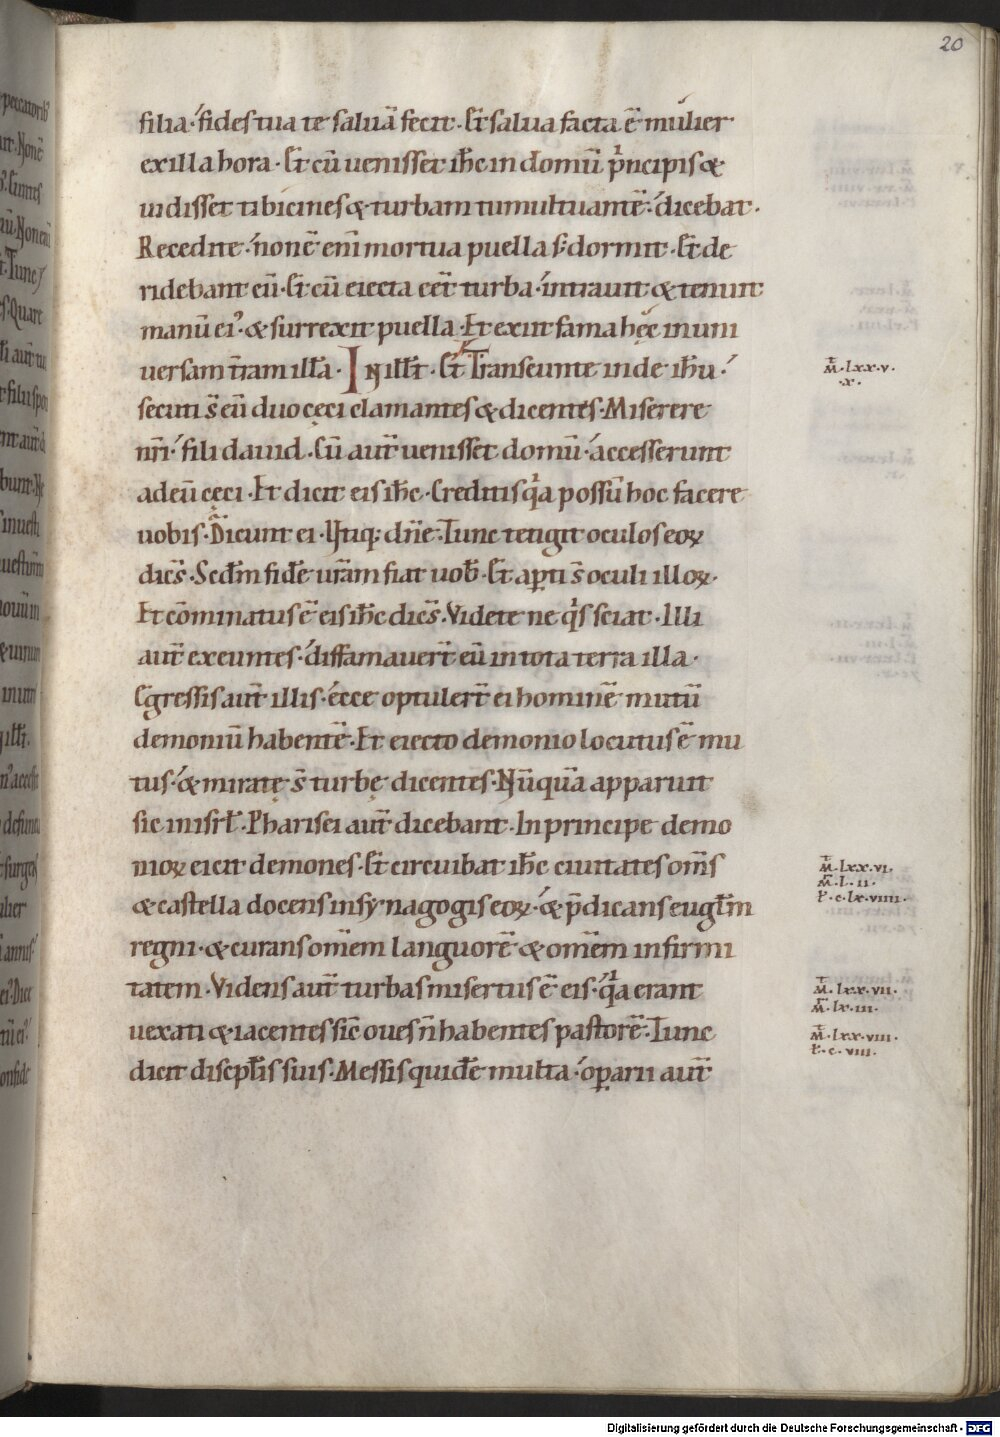 20
filia · fides tua te saluā fecit · Et salua facta ē mulier
ex illa hora · Et cū uenisset ih̄c in domū p̄ncipis &
uidisset tibicines & turbam tumultuantē · dicebat ·
Recedite · non ē eni mortua puella s; dormit · Et de
ridebant eū · Et cū eiecta eēt turba · intrauit & tenuit
manū ei' · & surrexit puella · Et exiit fama hęc in uni
uersam t̄ram illā · In ill̄t · Et Transeunte inde ih̄u ·
secuti s̄ eū duo cęci clamantes & dicentes · Miserere
nr̄i · fili dauid · Cū aut̄ uenisset domū · accesserunt
ad eū cęci · Et dicit eis ih̄c · Creditis qa possū hoc facere
uobis · Dicunt ei · Utiq; dn̄e · Tunc tetigit oculos eoꝝ
dicēs · Scd̄m fidē ur̄am fiat uob̄ · Et apti s̄ oculi illoꝝ ·
Et cōminatus ē eis ih̄c dicēs · Videte ne qs sciat · Illi
aut̄ exeuntes · diffamauer̄t eū in tota terra illa ·
Egressis aut̄ illis · ecce optuler̄t ei hominē mutū
demoniū habentē · Et eiecto demonio locutus ē mu
tus · & miratę s̄ turbę dicentes · Nūquā apparuit
sic in isrl̄ · Pharisei aut̄ dicebant · In principe demo
nioꝝ eicit demones · Et circuibat ih̄c ciuitates om̄s
& castella docens in synagogis eoꝝ · & p̄dicans eugl̄m
regni · & curans om̄em languorē & om̄em infirmi
tatem · Videns aut̄ turbas misertus ē eis · qa erant
uexati & iacentes sic̄ oues n̄ habentes pastorē · Tunc
dicit discipl̄is suis · Messis quidē multa · oparii aut̄
M̄ · lxx · v ·
· x ·
M̄ · lxx · vi ·
M̄ · l · ii ·
L̄ · c · lx · viiii ·
M̄ · lxx · vii ·
M̄ · lx · iii ·
M̄ · lxx · viii ·
L̄ · c · viii ·
Digitalisierung gefördert durch die Deutsche Forschungsgemeinschaft - DFG